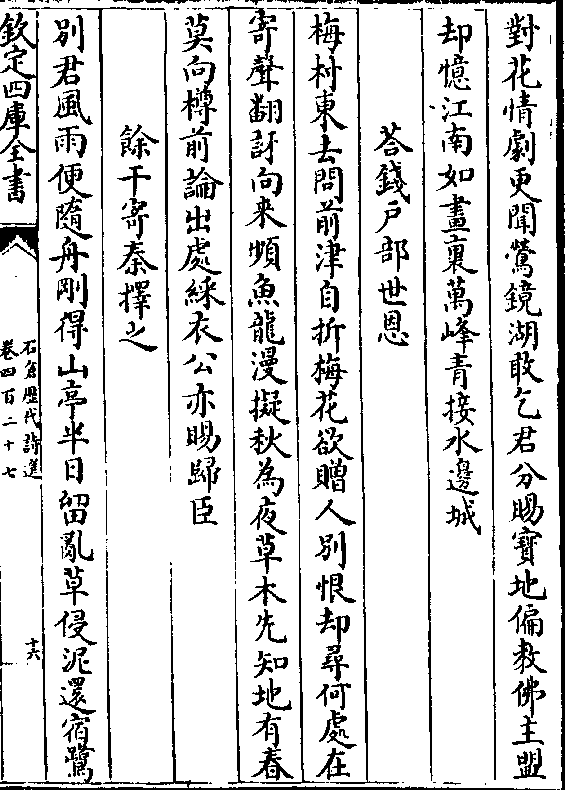 對花情劇更聞鶯鏡湖敢乞君分賜寶地偏教佛主盟
却憶江南如畫裏萬峰青接水邊城
荅錢戶部世恩
梅村東去問前津自折梅花欲贈人別恨却尋何處在
寄聲翻訝向來頻魚龍漫擬秋為夜草木先知地有春
莫向樽前論出處綵衣公亦賜歸臣
餘干寄秦擇之
別君風雨便隨舟剛得山亭半日留亂草侵泥還宿鷺
欽定四庫全書
石倉歷代詩選
卷四百二十七
十六